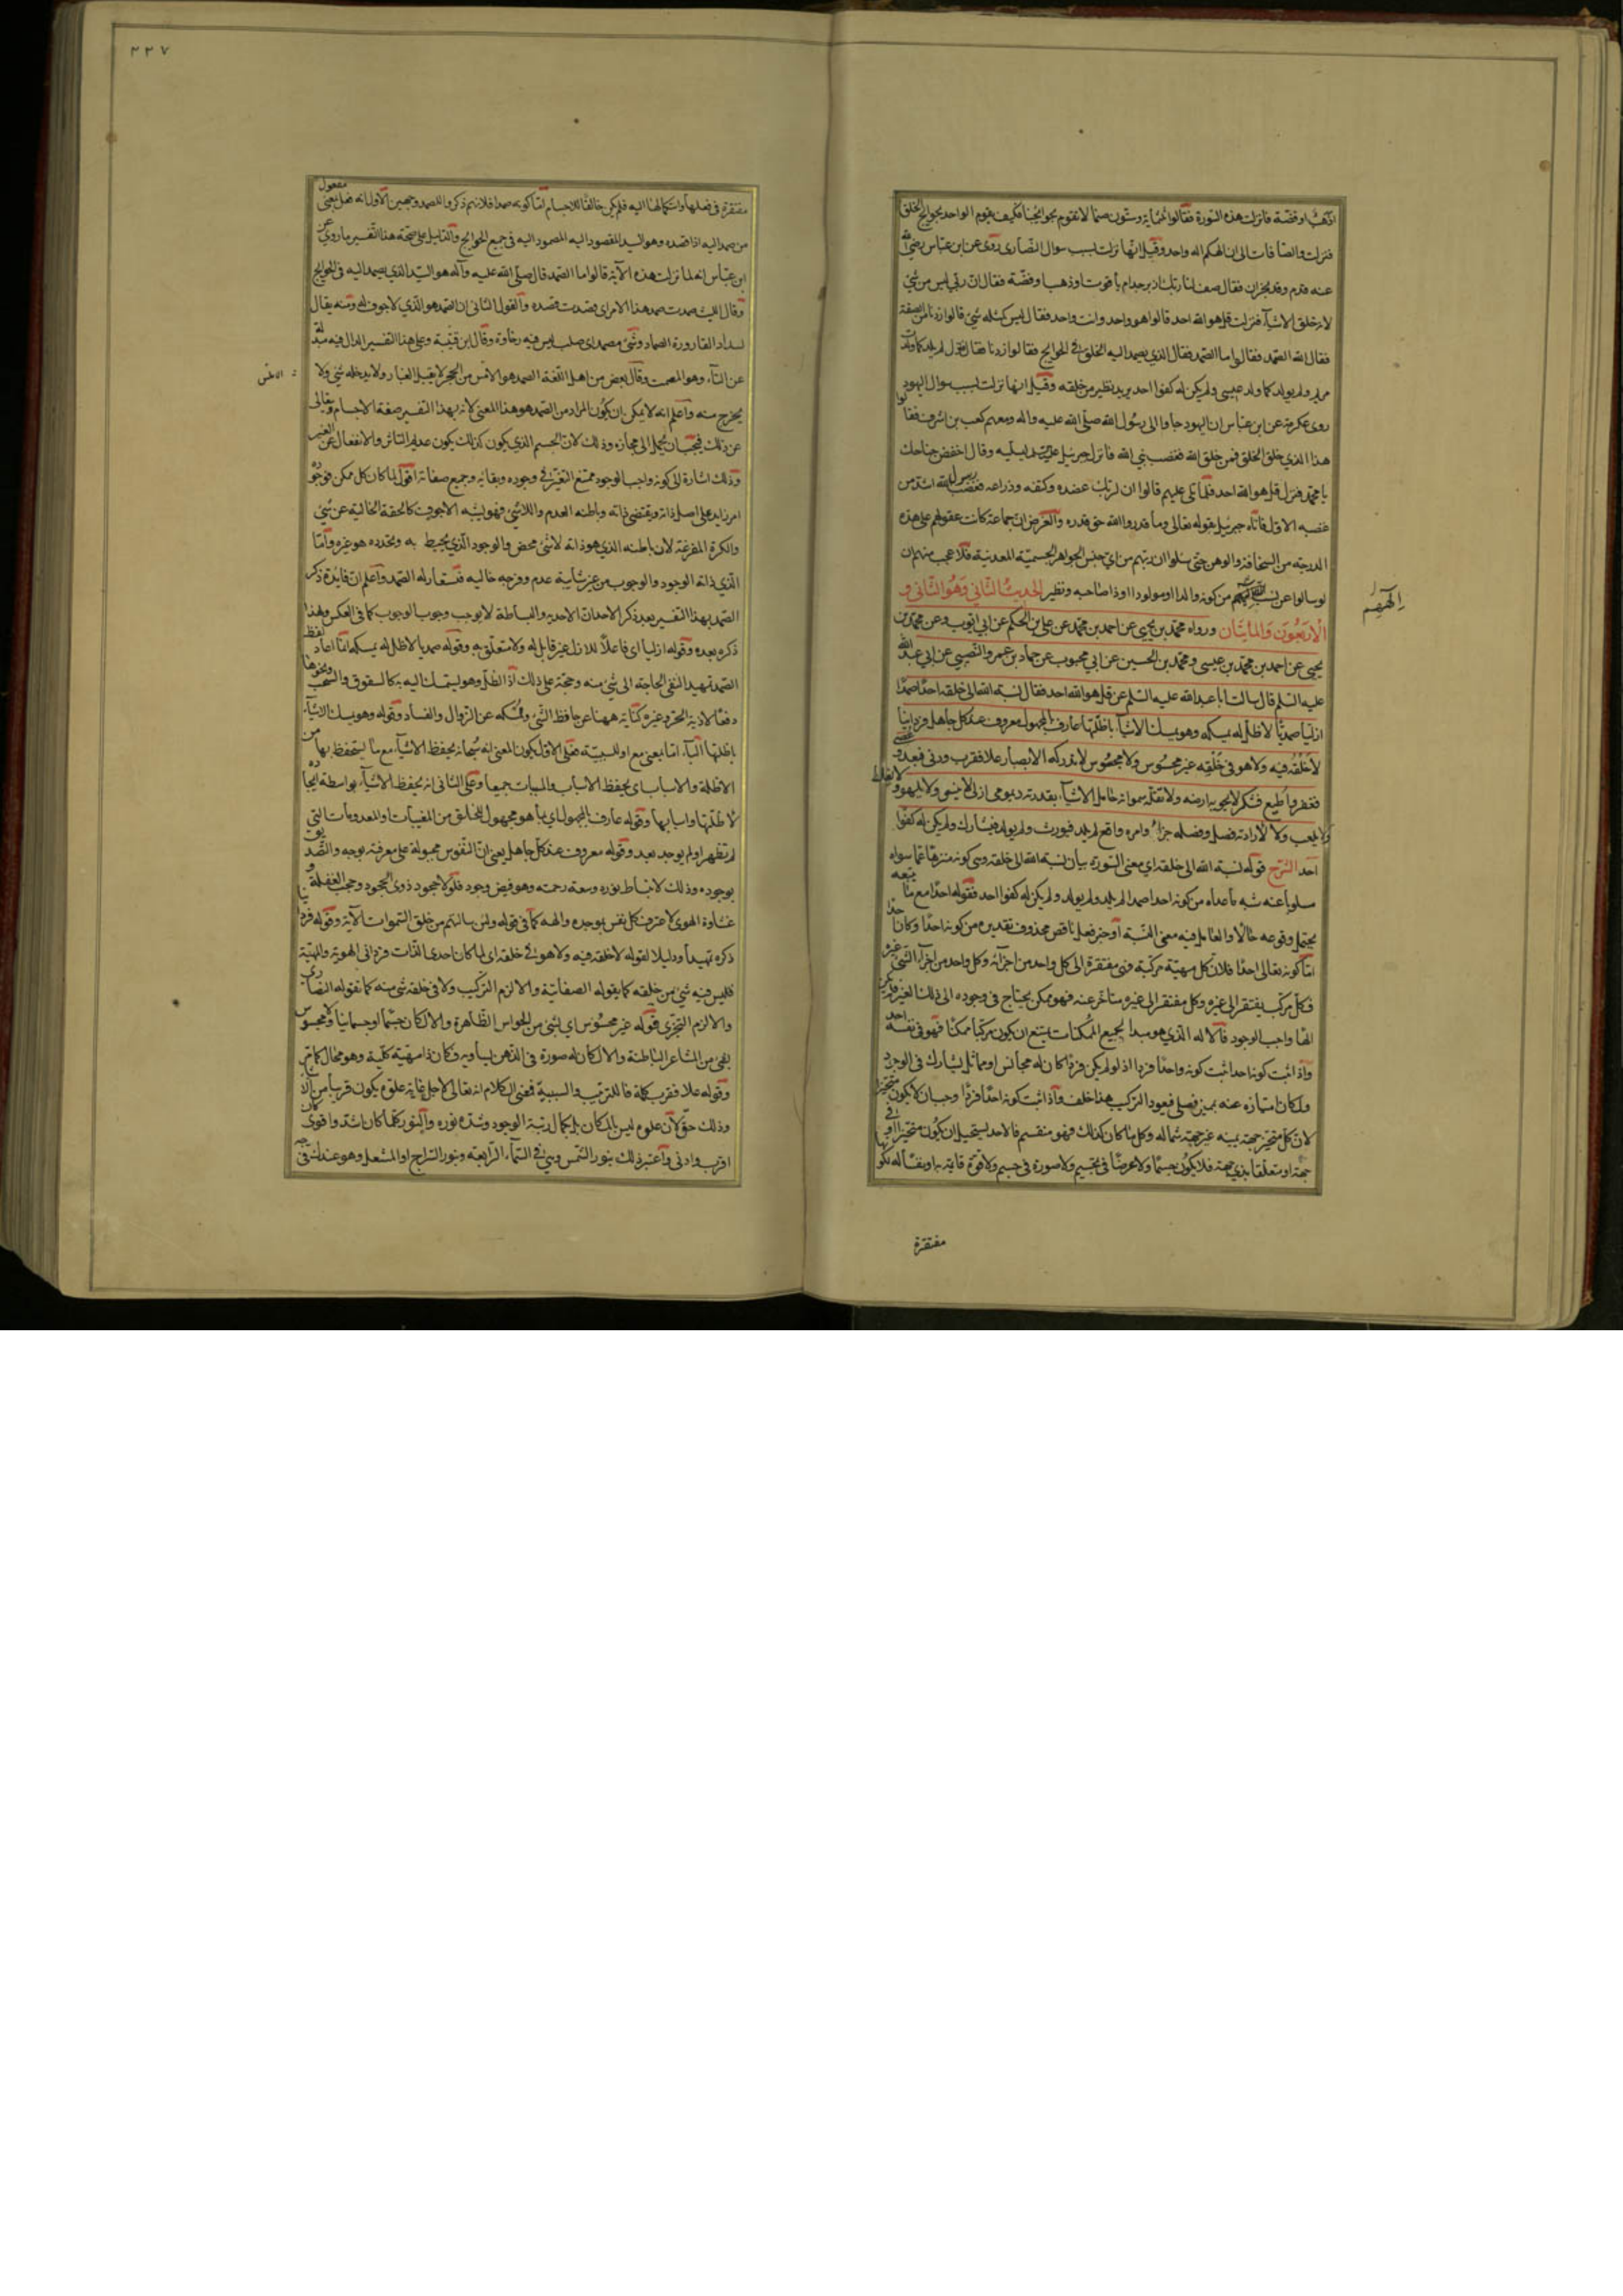 او ذهب او فضة فانزلت هذه السورة فقالوا ثلثماية وستون صنما لا تقوم بحوايجنا فكيف يقوم الواحد بحوايج الخلق
فنزلت والصافات الى ان الهكم اله واحد وقيل انها نزلت بسبب سوال النصارى روى عن ابن عباس رضي الله
عنه قدم وفد نجران فقال صف لنا ربك ازبرجد ام ياقوت او ذهب او فضة فقال ان ربي ليس من شي
لانه خلق الاشياء فنزلت قل هو الله احد قالوا هو واحد وانت واحد فقال ليس كمثله شي قالوا زدنا من الصفة
فقال الله الصمد فقالوا ما الصمد فقال الذي يصمد اليه الخلق في الحوايج فقالوا زدنا فقال لم يلد كما ولدت
مريم ولم يولد كما ولد عيسى ولم يكن له كفوا احد يريد نظير من خلقه وقيل انها نزلت بسبب سوال اليهود
روى عكرمة عن ابن عباس ان اليهود جاوا الى رسول الله صلى الله عليه واله ومعهم كعب بن اشرف فقالوا
هذا الذي خلق الخلق فمن خلق الله فغضب نبي الله فانزل جبرئيل عليه وقال اخفض جناحك
يا محمد فنزل قل هو الله احد فلما تلى عليهم قالوا ان لربك عضده وكفه وذراعه فغضب رسول الله اشد من
غضبه الاول فاتاه جبرئيل بقوله تعالى وما قدروا الله حق قدره والغرض ان جماعة كانت عقولهم على هذه
الدرجة من السخافة والوهن حتى سئلوا ان ربهم من اي جنس الجواهر الجسمية المعدنية فلا عجب منهم ان
لو سالوا عن نسب الههم من كونه والدا او مولودا او ذا صاحبه ونظير الحديث الثاني وهو الثاني و
الاربعون والمأيتان ورواه محمد بن يحيى عن احمد بن محمد عن علي بن الحكم عن ابي ايوب وعن محمد بن
يحيى عن احمد بن محمد بن عيسى ومحمد بن الحسين عن ابن محبوب عن حماد بن عمرو النصيبي عن ابي عبد الله
عليه السلم قال سالت ابا عبد الله عليه السلم عن قل هو الله احد فقال نسبة الله الى خلقه احدا صمدا
ازليا صمديا لا ظل له يمسكه وهو يمسك الاشياء باظلتها عارف بالمجهول معروف عند كل جاهل فردانيا
لا خلقه فيه ولا هو في خلقه غير محسوس ولا مجسوس لا تدركه الابصار علا فقرب ودنى فبعد وعصي
فغفر واطيع فشكر لا تحويه ارضه ولا تقله سمواته حامل الاشياء بقدرته ديمومي ازلي لا ينسى ولا يلهو ولا يغلط
ولا يلعب ولا لارادته فصل وفصله جزاء وامره واقع لم يلد فيورث ولم يولد فيشارك ولم يكن له كفوا
احد الشرح قوله نسبة الله الى خلقه اي معنى السورة بيان نسبة الله الى خلقه وهي كونه منزها عما سواه
مسلوبا عنه شبه ما عداه من كونه احدا صمدا لم يلد ولم يولد ولم يكن له كفوا احد فقوله احدا مع ما يتبعه
يحتمل وقوعه حالا والعامل فيه معنى النسبة او خبر فعل ناقص محذوف تقديره من كونه احدا وكان احدا
اما كونه تعالى احدا فلان كل مهية مركبة فهي مفتقرة الى كل واحد من اجزائه وكل واحد من اجزاء الشي غيره
فكل مركب يفتقر الى غيره وكل مفتقر الى غيره متاخر عنه فهو ممكن يحتاج في وجوده الى ذلك الغير فلم يكن
الها واجب الوجود فالاله الذي هو مبدا لجميع الممكنات يمتنع ان يكون مركبا ممكنا فهو في نفسه احد
واذا ثبت كونه احدا ثبت كونه واحدا فردا اذ لو لم يكن فردا كان له مجانس او مماثل يشارك في الوجود
ولكان امتيازه عنه بمميز فصلي فيعود التركيب هذا خلف واذا ثبت كونه احدا فردا وجب ان لا يكون متحيزا
لان كل متحيز جهة يمينه غير جهة شماله وكل ما كان كذلك فهو منقسم فالاحد يستحيل ان يكون متحيزا او في
جهة او متعلقا بذي جهة فلا يكون جسما ولا عرضا في جسم ولا صورة في جسم ولا قوة قايمة به او نفسا له
مفتقرة
الههم
٢٢٧
مفتقرة في فعلها واستكمالها اليه فلم يكن خالقا للاجسام اما كونه صمدا فلانهم ذكروا للصمد وجهين الاول انه فعل بمعنى مفعول
من صمد اليه اذا قصده وهو السيد المقصود اليه المصمود اليه في جميع الحوايج والدليل على صحة هذا التفسير ما روي عن
ابن عباس انه لما نزلت هذه الآية قالوا ما الصمد قال صلى الله عليه وآله هو السيد الذي يصمد اليه في الحوايج
وقال الليث صمدت صمد هذا الامر اي قصدت قصده والقول الثاني ان الصمد هو الذي لا جوف له ومنه يقال
لسداد القارورة الصماد وشي مصمد اي صلب ليس فيه رخاوة وقال ابن قتيبة وعلى هذا التفسير الدال فيه مبدلة
عن التاء وهو المصمت وقال بعض من اهل اللغة الصمد هو الاملس من الحجر لا يقبل الغبار ولا يدخله شي ولا
يخرج منه واعلم انه لا يمكن ان يكون المراد من الصمد هو هذا المعنى لانه بهذا التفسير صفة الاجسام وتعالى
عن ذلك فيجب ان يحمل الى مجازه وذلك لان الجسم الذي يكون كذلك يكون عديم التاثر والانفعال عن الغير
وذلك اشارة الى كونه واجب الوجود ممتنع التغير في وجوده وبقائه وجميع صفاته اقول لما كان كل ممكن فوجوده
امر زايد على اصل ذاته ويقتضى ذاته وباطنه العدم واللاشي فهو يشبه الاجوف كالحقة الخالية عن شي
والكرة المفرغة لان باطنه الذي هو ذاته لا شي محض والوجود الذي يحيط به ويحدده هو غيره واما
الذي ذاته الوجود والوجوب من غير شايبة عدم وفرجه خاليه فيستعار له الصمد واعلم ان فايدة ذكر
الصمد بهذا التفسير بعد ذكر الاحد ان الاحديه والبساطة لا يوجب وجوب الوجوب كما في العكس ولهذا
ذكره بعده وقوله ازليا اي فاعلا للازل غير قابل له ولا متعلق به وقوله صمديا لا ظل له يمسكه انما اعاد لفظ
الصمد تمهيدا لنفي الحاجة الى شي منه وحجته على ذلك اذ الظل وهو ليتمسك اليه كالسقوف والسحب ونحوها
دفعا لاذية الحر وغيره كناية ههنا عن حافظ الشي وممسكه عن الزوال والفساد وقوله وهو يمسك الاشياء
باظلتها الباء اما بمعنى مع او للسببية فعلى الاول يكون المعنى انه سبحانه يحفظ الاشياء مع ما يستحفظ بها من
الاظلة والاسباب اي يحفظ الاسباب والمسببات جميعا وعلى الثاني انه يحفظ الاشياء بواسطة ايجاده
لاظلتها واسبابها وقوله عارف بالمجهول اي بما هو مجهول للخلق من المغيبات والمعدومات التي
لم تظهر او لم يوجد بعد وقوله معروف عند كل جاهل يعني ان النفوس مجبولة على معرفته بوجه والتصديق
بوجوده وذلك لانبساط نوره وسعة رحمته وهو فيض وجود فلو لا جحود ذوي الجحود وحجب الغفلة و
غشاوة الهوى لاعترفت كل نفس بموجده والهه كما في قوله ولئن سالتهم من خلق السموات الآية وقوله فردانيا
ذكره تمهيدا ودليلا لقوله لا خلقه فيه ولا هو في خلقه اي لما كان احدي الذات فرداني الهوية والمهية
فليس فيه شي من خلقه كما يقوله الصفاتية والا لزم التركيب ولا في خلقه شي منه كما تقوله النصارى
والا لزم التجزي قوله غير محسوس اي لشي من الحواس الظاهرة والا لكان جسما او جسمانيا ولا مجسوس
بشي من المشاعر الباطنة والا لكان له صورة في الذهن يساويه فكان ذا مهية كلية وهو محال كما مر
وقوله علا فقرب كلمة فا للترتيب والسببية فمعنى الكلام انه تعالى لاجل غاية علوه يكون قريبا من الاشياء
وذلك حق لان علوه ليس بالمكان بل بكمال رتبة الوجود وشدة نوره والنور كلما كان اشد واقوى كان
اقرب وادنى واعتبر ذلك بنور الشمس وهي في السماء الرابعة وبنور السراج او المشعل وهو عندك في
الاملس